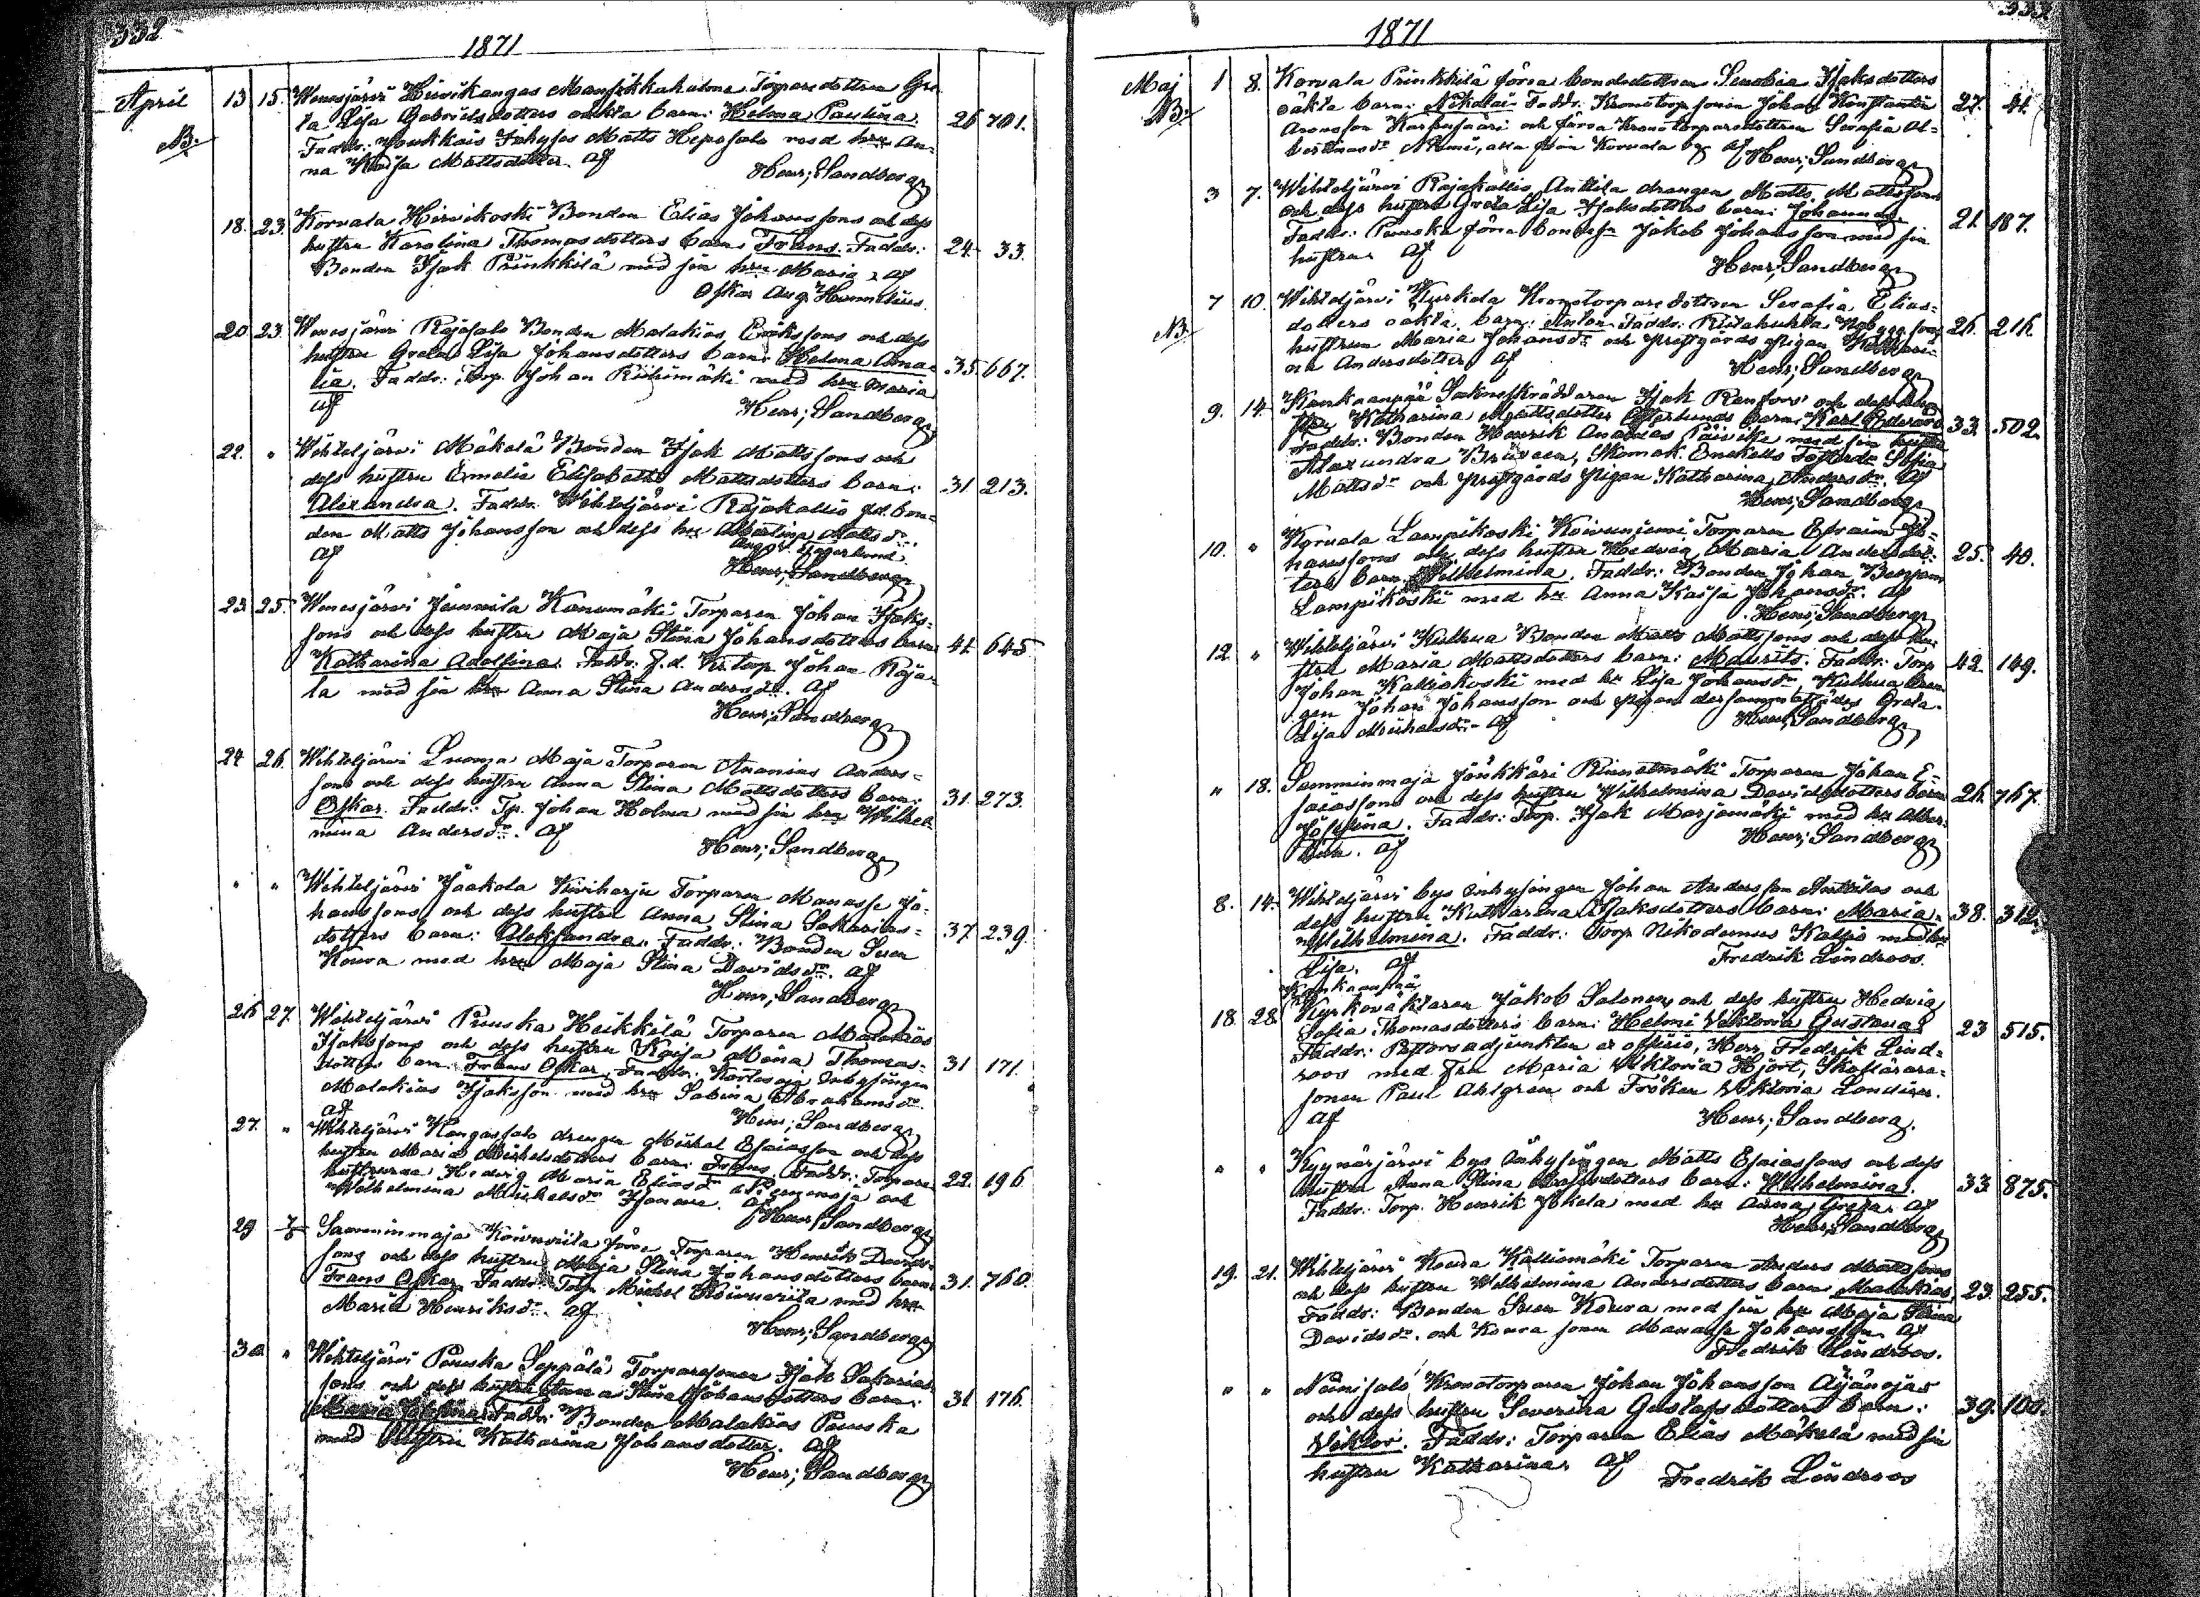 332
1871
April 13 15. Wenesjärvi Hirvikangas Torparedottren Gre
ta Lisa Gabrielsdotters oäkta barn: Helma Paulina. 26 701.
NB. Faddr: Inhyses Matts Heposalo med hru An-
na Kaisa Mattsdotter. af
Henr; Sandberg
18. 23. Korvala Hirvikoski Bonden Elias Johanssons och dess
hustru Karolina Thomasdotters barn: Frans. Faddr: 24. 33.
Bonden Isak Prinkkilä med sin hru Maria, af
Oskar Aug.
20 23. Wenesjärvi Rajasalo Bonden Malakias Erikssons och dess
hustru Greta Lisa Johansdotters barn: Helena Ama- 35 667.
lia. Faddr: Torp. Johan Riihimäki med hru Maria
af Henr; Sandberg
22. " Wihteljärvi Mäkelä Bonden Isak Mattssons och
dess hustru Ermelie Elisabeth Mattsdotters barn: 31 213.
Alexandra. Faddr. Wihteljärvi Rajakallio f.d. bon-
den Matts Johansson och dess hru Albertina Mattsdr.
af Fagerlund
Henr; Sandberg
23. 25. Wenesjärvi Junnila Torparen Johan Isaks-
sons och dess hustru Maja Stina Johansdotters barn 41. 645
Katharina Adolfina. Faddr. f.d. Kr. torp. Johan Raja-
la med sin hru Anna Stina Andersdr. af
Henr; Sandberg
24 26. Wihteljärvi Luoma Maja Torparen Ananias Anders-
sons och dess hustru Anna Stina Mattsdotters barn: 31. 273.
Oskar. Faddr.: Tp. Johan Holma med sin hru Wilhel-
mina Andersdr. af
Henr; Sandberg
" " Wihteljärvi Jaakola Kiviharju Torparen Manasse Jo-
hanssons och dess hustru Anna Stina Sakarias-
dotters barn: Aleksandra. Faddr.: Bonden Sven 37. 239.
Koura med hru Maja Stina Davidsdr. af
Henr; Sandberg
26 27. Wihteljärvi Pruuska Heikkilä Torparen Malakias
Isakssons och dess hustru Kaisa Thomas-
dotters barn: Frans Oskar. Faddr: Inhysingen 31 171.
Malakias Isaksson med hru Sabina Abrahamsdr.
af Henr; Sandberg
27. " Wihteljärvi Kangassalo drengen Mickel Esaiasson och dess
hustru Maria Mickelsdotters barn: Frans. Faddr.: Torpare
hustrurna Hedvig Maria Eliasdr och 22. 196
Wilhelmina Mickelsdr af
Henr; Sandberg
29 Samminmaja Koivuviita förre Torparen Henrik Davids-
sons och dess hustru Maja Stina Johansdotters barn:
Frans Oskar. Faddr: Torp. Mickel Koivuviita med hru 31. 760.
Maria Henriksdr. af
Henr; Sandberg
30. " Wihteljärvi Pruuska Seppälä Torparesonen Isak Sakarias-
sons och dess hustru Anna Stina Johansdotters barn:
Maria Josefina. Faddr: Bonden Malakias Pruuska 31 176.
med hustru Katharina Johansdotter. af
Henr; Sandberg
333
1871
Maj 1 8. Korvala Prinkkilä förra bondedottren Senobia Isaksdotters
NB. oäkta barn: Nikolai. Faddr. Kronotorp. sonen Johan Konstantin 27. 41.
Aronsson Karhusaari och förra Kronotorparedottren Serafia Al-
bertinasdr Niemi, alla från Korvala by. af Henr; Sandberg
3 7. Wihteljärvi Rajakallio Anttila drengen Matts Mattssons
och dess hustru Greta Lisa Isaksdotters barn: Johannes. 21. 187.
Faddr: Pruuska förra bonden Jakob Johansson med sin
hustru. af
Henr; Sandberg
7 10. Wihteljärvi Kurkela Kronotorparedottren Serafia Elias-
NB dotters oäkta barn: Anton. Faddr: 26. 216.
hustrun Maria Johansdr och Prestgårds pigan Kathari-
na Andersdotter. af
Henr; Sandberg
9. 14. Kankaanpää Sockneskräddaren Isak Renfors' och dess hu-
stru Katharina Mattsdotter Österlunds barn: Karl Edvard 33. 502.
Faddr: Bonden Henrik Ananias Päivike med sin hustru
Alexandra, Skomak. Enckells Fosterdr. Sofia
Mattsdr och Prestgårds pigan Katharina Andersdr. af
Henr; Sandberg
10. " Korvala Lampikoski Koivuniemi Torparen Efraim Jo-
hanssons och dess hustru Hedvig Maria Andersdot- 25. 40.
ters barn: Wilhelmina. Faddr.: Bonden Johan Benjam
Lampikoski med hru Anna Kaisa Johansdr. af
Henr; Sandberg
12. " Wihteljärvi Kulhua Bonden Matts Mattssons och dess hu-
stru Maria Mattsdotters barn: Maurits. Faddr.: Torp. 42. 149.
Johan Kalliokoski med hru Lisa Johansdr Kulhua dren-
gen Johan Johansson och pigan dersammastädes Greta
Lisa Mickelsdr. af Henr; Sandberg
" 18. Samminmaja Jönkkäri Torparen Johan E-
saiassons och dess hustru Wilhelmina Davidsdotters barn 26. 767.
Josefina. Faddr: Torp. Isak Marjamäki med hru Alber-
tina. af Henr; Sandberg
8. 14. Wihteljärvi bys inhysingen Johan Andersson Anttilas och
dess hustru Katharina Isaksdotters barn: Maria 38. 312.
Wilhelmina. Faddr: Torp. Nikodemus Kallio med hru
Lisa. af Fredrik Lindroos.
Kankaanpää
18. 28. Kyrkoväktaren Jakob Salonens och dess hustru Hedvig
Sofia Thomasdotters barn: Helmi Viktoria Gustava 23 515.
Faddr: Pastorsadjunkten ex officio, Herr Fredrik Lind-
roos med Fru Maria Viktoria Hjort, Skollärare-
sonen Paul Ahlgren och Fröken Viktoria Londén.
af Henr; Sandberg.
" " Kyynärjärvi bys inhysingen Matts Esaiassons och dess
hustru Anna Stina dotters barn: Wilhelmina. 33 875.
Faddr: Torp. Henrik Jokela med hru Anna Greta. af
Henr; Sandberg
19. 21. Wihteljärvi Koura Kalliomäki Torparen Anders Mattssons
och dess hustru Wilhelmina Andersdotters barn: Malakias. 23. 255.
Faddr: Bonden Sven Koura med sin hru Maja Stina
Davidsdr. och Koura sonen Manasse Johansson. af
Fredrik Lindroos.
" " Niinisalo Kronotorparen Johan Johansson Äijänojas
och dess hustru Severina Gustafsdotters barn: 39. 100.
Viktor. Faddr: Torparen Elias Mäkelä med sin
hustru Katharina. af Fredrik Lindroos